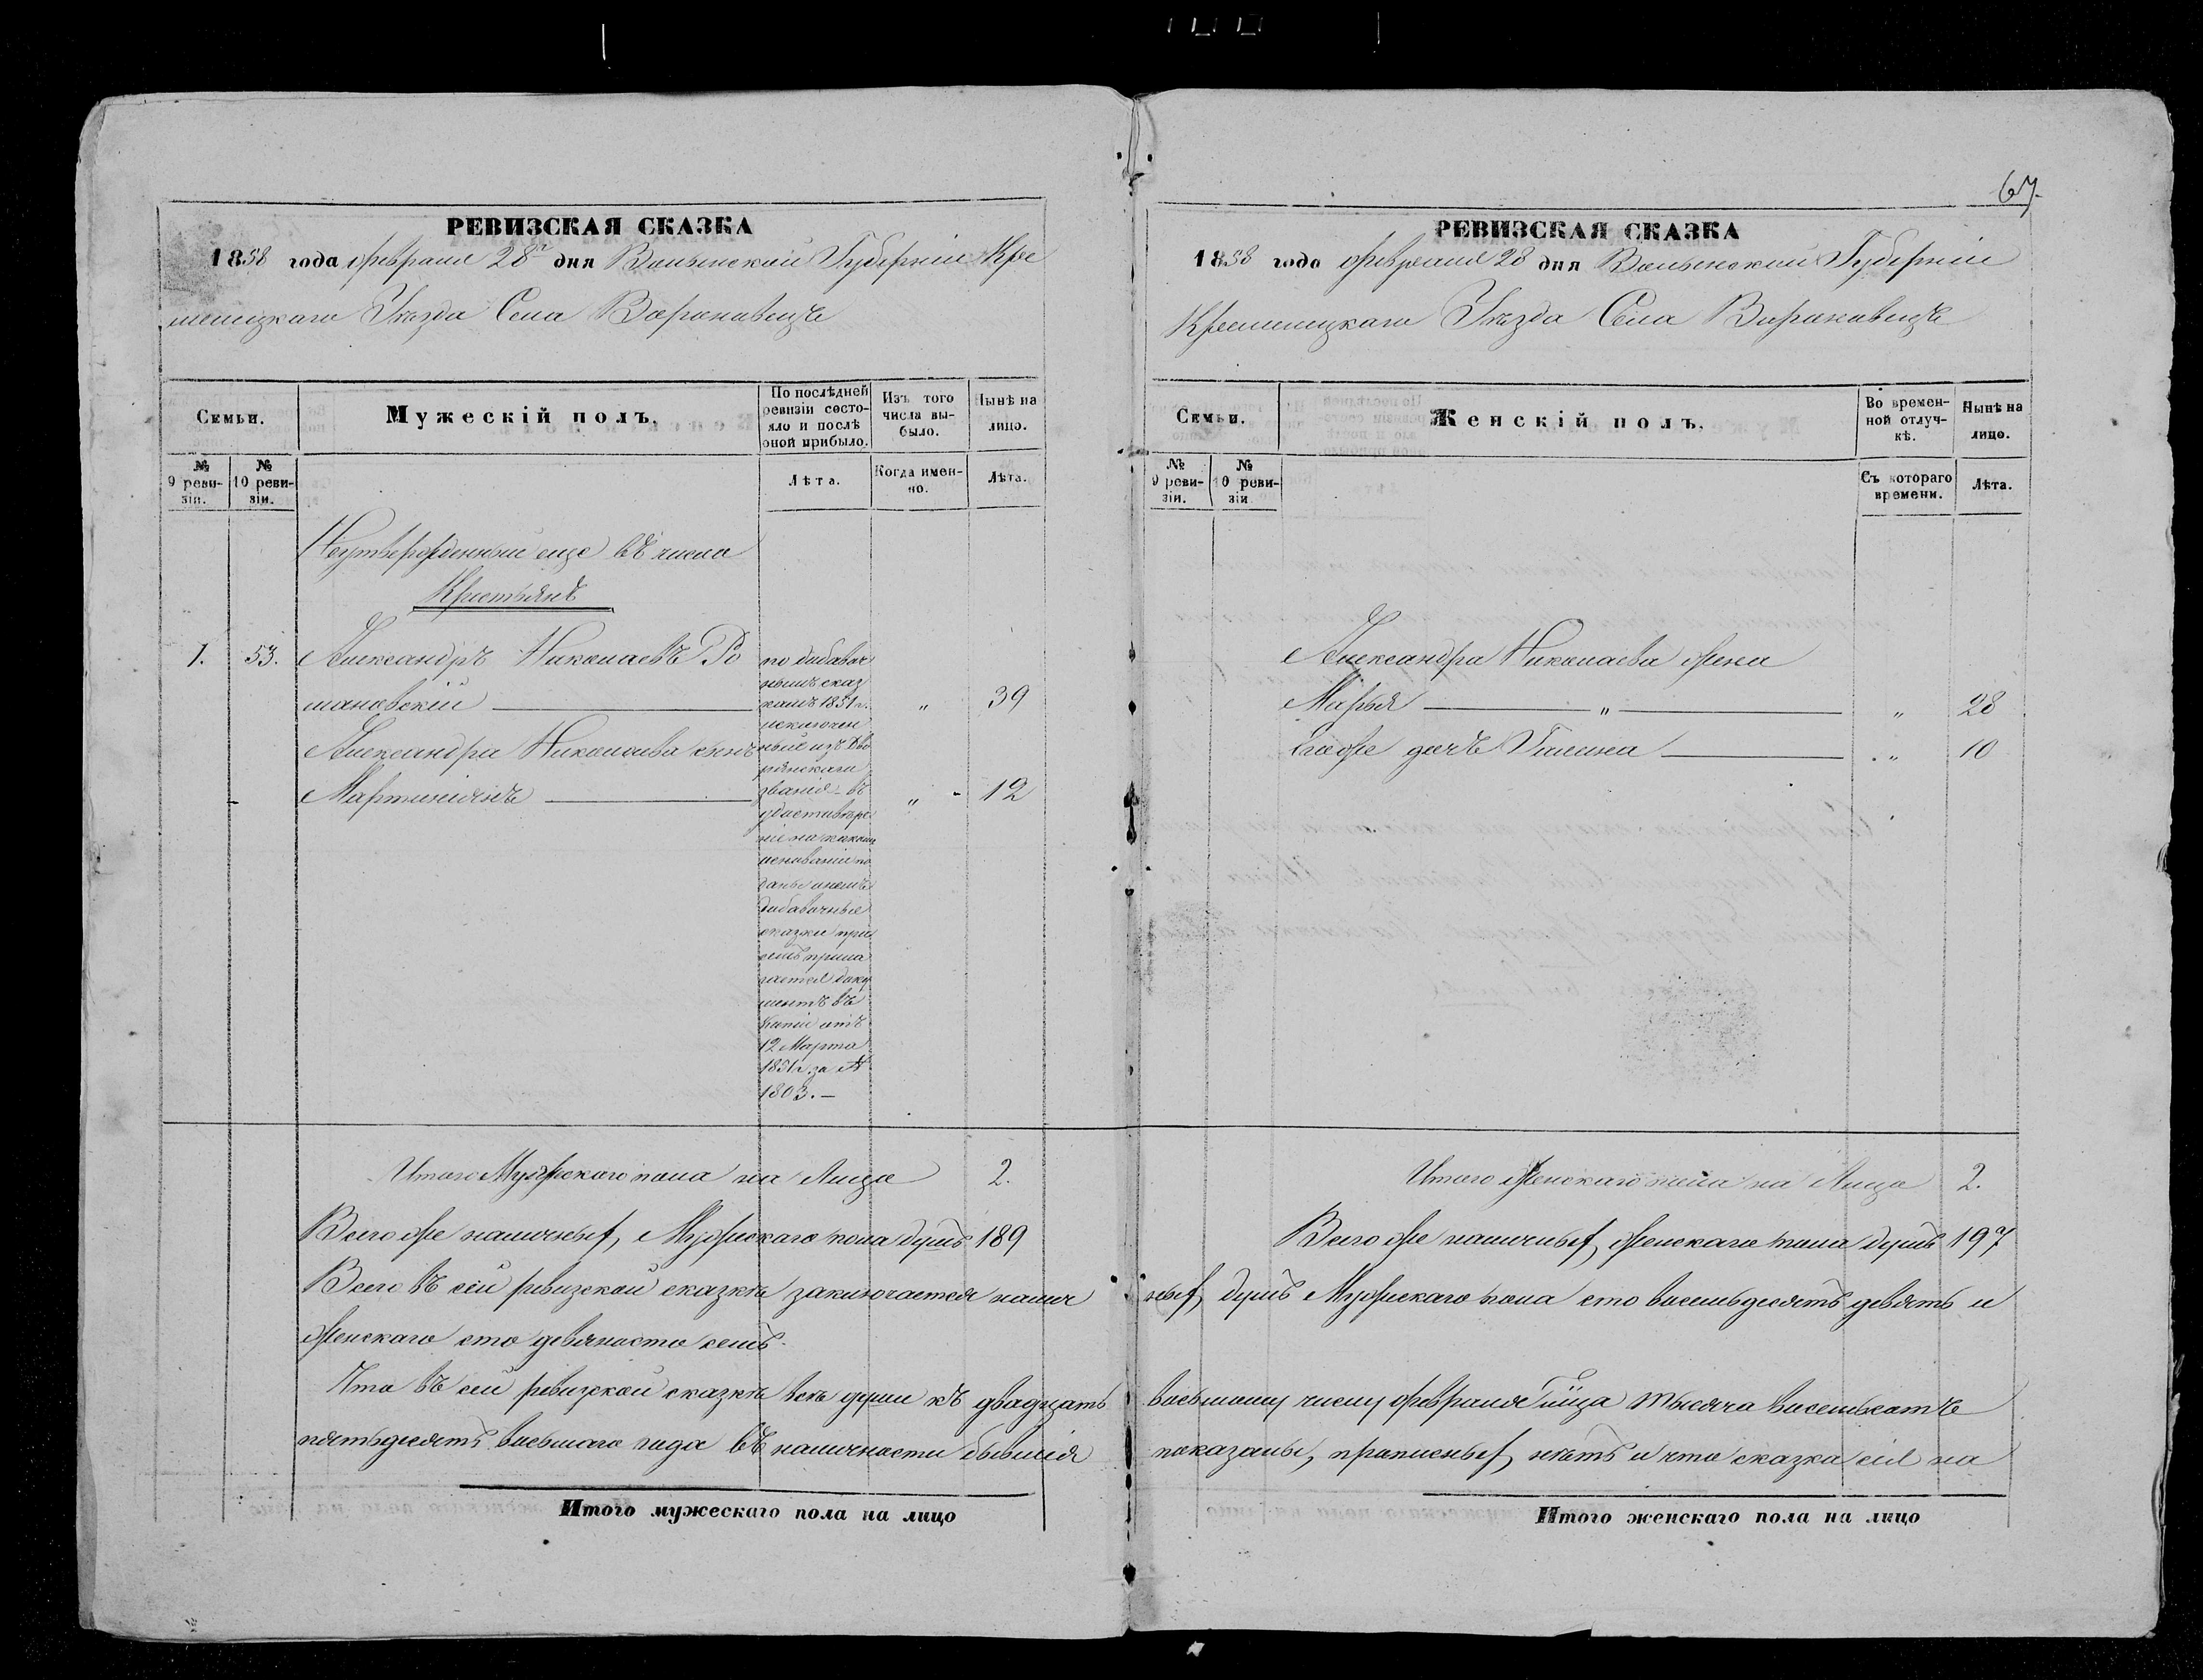 67.
РЕВИЗСКАЯ СКАЗКА
1858 года февраля 28 дня Волынской Губерніи Кре
менецкаго Уѣзда Села Вороновецъ
Семьи.
Мужескій полъ.
По послѣдней ревизіи состо-
яло и послѣ
оной прибыло.
Изъ того
числа вы-
было.
Нынѣ на
лицо.
№
9 реви-
зіи.
№
10 реви-
зіи.
Лѣта.
Когда имен-
но.
Лѣта.
Неутвержденный еще въ число
Крестьянъ
1. 53. Александръ Николаевъ Ро
мановскій „ 39
Александра Николаева сынъ
Мартиніянъ „ 12
по добавоч
нымъ сказ
камъ 1851 г.
исключен
ный изъ Дво
рянскаго
званія въ
удостовѣре
ніе на какомъ
основаніи по
даны
добавочные
сказки при
семъ прила
гается доку
ментъ въ
копіи отъ
12 Марта
1851 г. за №
1803.—
Итого Мужескаго пола на Лицо 2.
Всего же наличныхъ Мужескаго пола душъ 189
Всего въ сей ревизской сказкѣ заключается налич
женскаго сто девяносто семь.
Что въ сей ревизской сказкѣ всѣ души къ двадцать
пятьдесятъ восьмаго года въ наличности бывшія
Итого мужескаго пола на лицо
РЕВИЗСКАЯ СКАЗКА
1858 года февраля 28 дня Волынской Губерніи
Кременецкаго Уѣзда Села Вороновецъ
Семьи.
Женскій полъ.
Во времен-
ной отлуч-
кѣ.
Нынѣ на
лицо.
№
9 реви-
зіи.
№
10 реви-
зіи
Съ котораго
времени.
Лѣта.
Александра Николаева жена
Марья „ „ 28
Его же дочь Галина „ 10
Итого женскаго пола на Лицо 2.
Всего же наличныхъ женскаго пола душъ 197
ныхъ душъ Мужескаго пола сто восемьдесятъ девять и
восьмому числу февраля тысяча восемьсотъ
показаны, прописныхъ нѣтъ и что сказка сія на
Итого женскаго пола на лицо